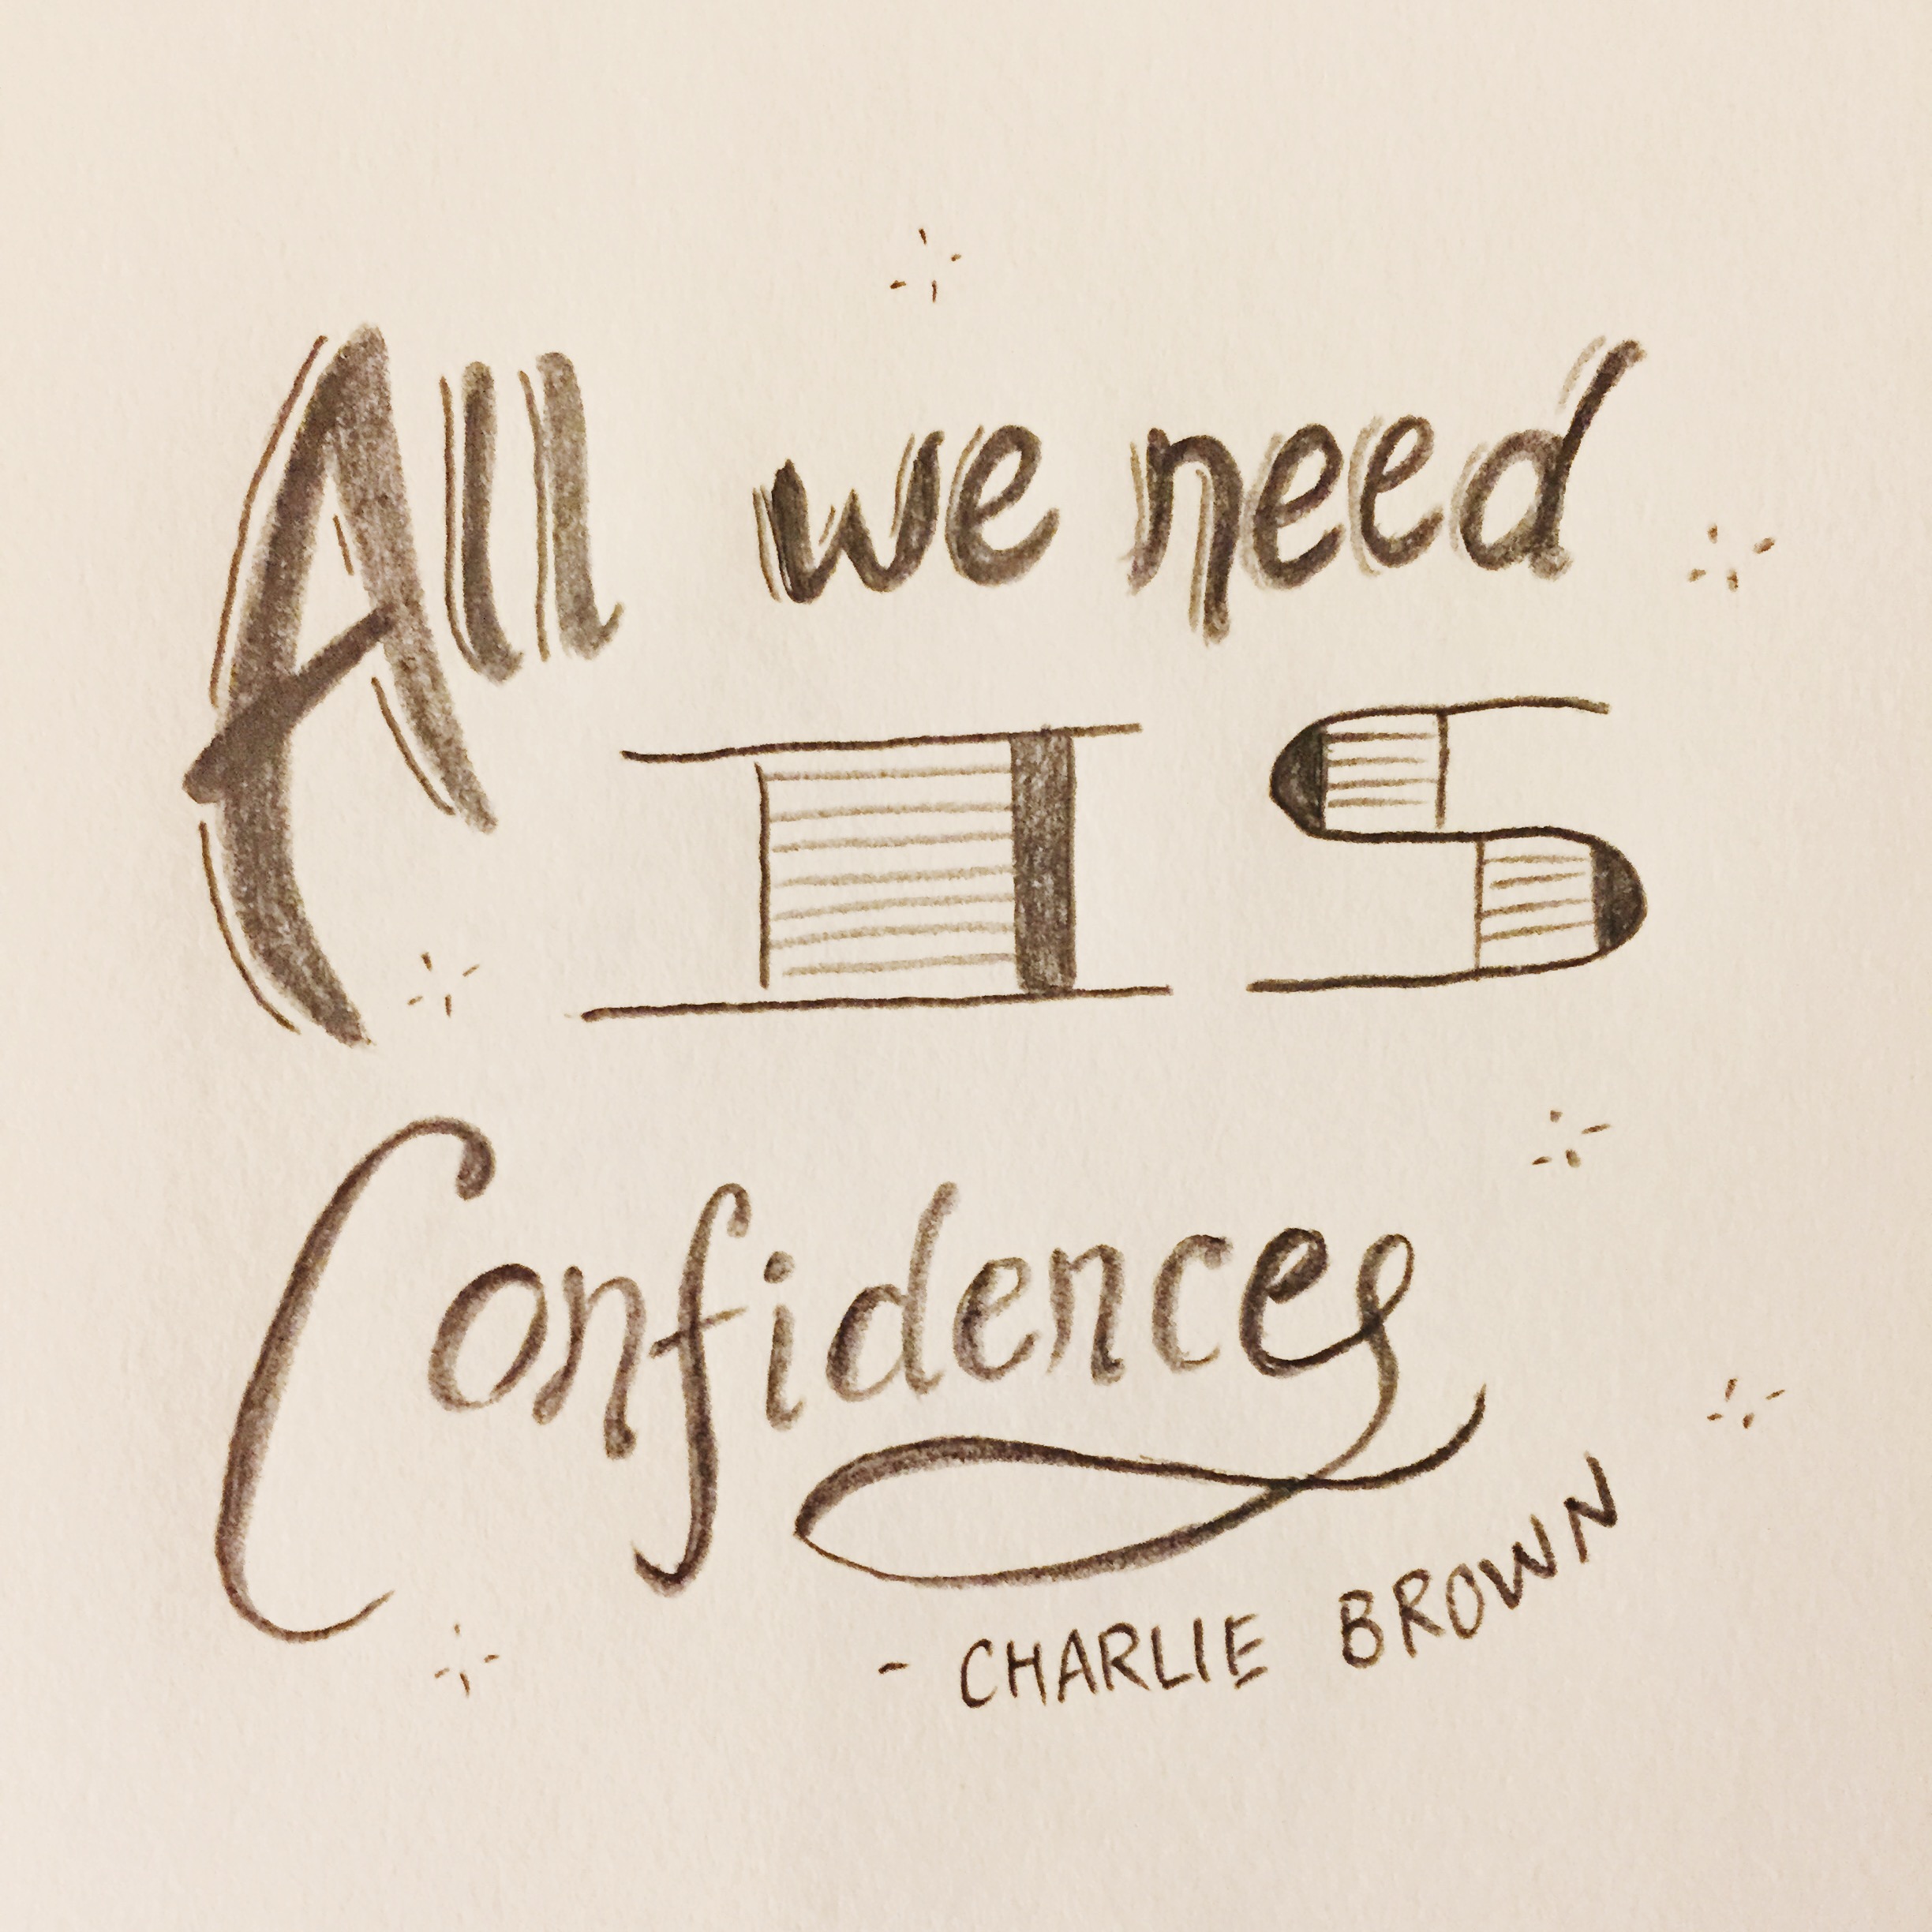 All we need
IS
Confidence
- CHARLIE BROWN